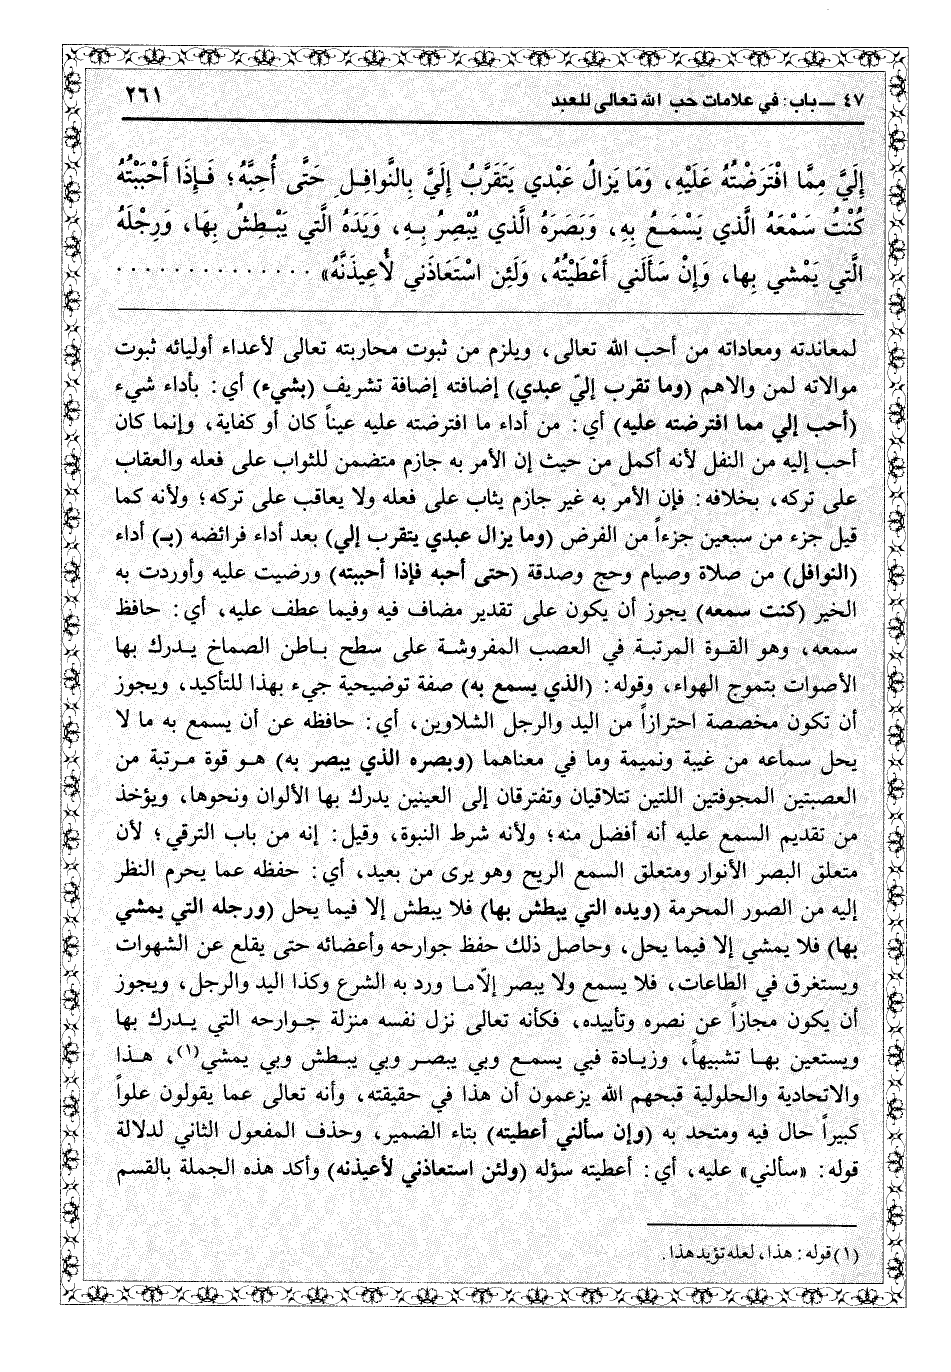 ٤٧ ــ باب: في علامات حب الله تعالى للعبد
٢٦١
إِلَيَّ مِمَّا افْتَرَضْتُهُ عَلَيْهِ، وَمَا يَزالُ عَبْدي يَتَقَرَّبُ إِلَيَّ بِالنَّوافِلِ حَتَّى أُحِبَّهُ؛ فَإِذَا أَحْبَبْتُهُ
كُنْتُ سَمْعَهُ الَّذي يَسْمَعُ بِهِ، وَبَصَرَهُ الَّذي يُبْصِرُ بِهِ، وَيَدَهُ الَّتي يَبْطِشُ بِهَا، وَرِجْلَهُ
الَّتي يَمْشي بِها، وَإِنْ سَأَلَني أَعْطَيْتُهُ، وَلَئِن اسْتَعَاذَني لأُعِيذَنَّهُ» . . . . . . . . . . . . . .
لمعاندته ومعاداته من أحب الله تعالى، ويلزم من ثبوت محاربته تعالى لأعداء أوليائه ثبوت
موالاته لمن والاهم (وما تقرب إليّ عبدي) إضافته إضافة تشريف (بشيء) أي: بأداء شيء
(أحب إلي مما افترضته عليه) أي: من أداء ما افترضته عليه عيناً كان أو كفاية، وإنما كان
أحب إليه من النفل لأنه أكمل من حيث إن الأمر به جازم متضمن للثواب على فعله والعقاب
على تركه، بخلافه: فإن الأمر به غير جازم يثاب على فعله ولا يعاقب على تركه؛ ولأنه كما
قيل جزء من سبعين جزءاً من الفرض (وما يزال عبدي يتقرب إلي) بعد أداء فرائضه (بـ) أداء
(النوافل) من صلاة وصيام وحج وصدقة (حتى أحبه فإذا أحببته) ورضيت عليه وأوردت به
الخير (كنت سمعه) يجوز أن يكون على تقدير مضاف فيه وفيما عطف عليه، أي: حافظ
سمعه، وهو القوة المرتبة في العصب المفروشة على سطح باطن الصماخ يدرك بها
الأصوات بتموج الهواء، وقوله: (الذي يسمع به) صفة توضيحية جيء بهذا للتأكيد، ويجوز
أن تكون مخصصة احترازاً من اليد والرجل الشلاوين، أي: حافظه عن أن يسمع به ما لا
يحل سماعه من غيبة ونميمة وما في معناهما (وبصره الذي يبصر به) هو قوة مرتبة من
العصبتين المجوفتين اللتين تتلاقيان وتفترقان إلى العينين يدرك بها الألوان ونحوها، ويؤخذ
من تقديم السمع عليه أنه أفضل منه؛ ولأنه شرط النبوة، وقيل: إنه من باب الترقي؛ لأن
متعلق البصر الأنوار ومتعلق السمع الريح وهو يرى من بعيد، أي: حفظه عما يحرم النظر
إليه من الصور المحرمة (ويده التي يبطش بها) فلا يبطش إلا فيما يحل (ورجله التي يمشي
بها) فلا يمشي إلا فيما يحل، وحاصل ذلك حفظ جوارحه وأعضائه حتى يقلع عن الشهوات
ويستغرق في الطاعات، فلا يسمع ولا يبصر إلاّ ما ورد به الشرع وكذا اليد والرجل، ويجوز
أن يكون مجازاً عن نصره وتأييده، فكأنه تعالى نزل نفسه منزلة جوارحه التي يدرك بها
ويستعين بها تشبيهاً، وزيادة فبي يسمع وبي يبصر وبي يبطش وبي يمشي(١)، هذا
والاتحادية والحلولية قبحهم الله يزعمون أن هذا في حقيقته، وأنه تعالى عما يقولون علواً
كبيراً حال فيه ومتحد به (وإن سألني أعطيته) بتاء الضمير، وحذف المفعول الثاني لدلالة
قوله: «سألني» عليه، أي: أعطيته سؤله (ولئن استعاذني لأعيذنه) وأكد هذه الجملة بالقسم
(١) قوله: هذا، لعله تؤيد هذا.